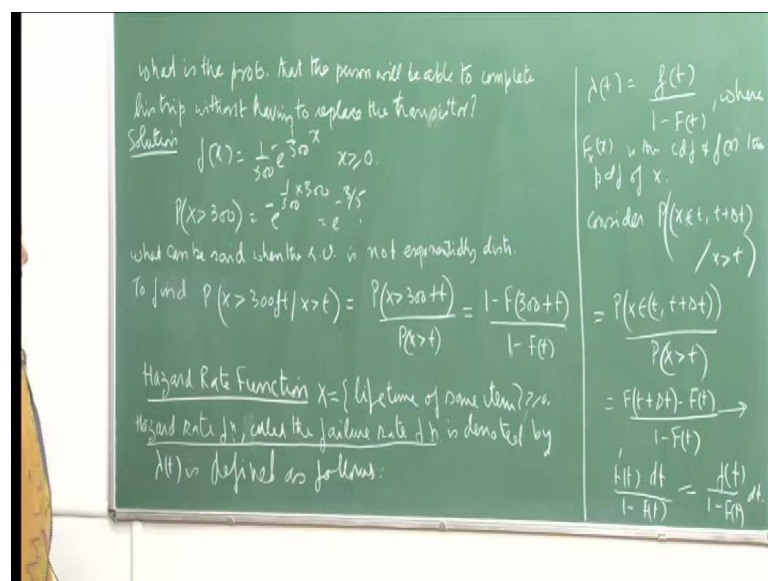 what is the prob. that the person will be able to complete
his trip without having to replace the transistor?
Solution f(x) = 1/500 e^{-x/500} x ≥ 0.
P(X > 300) = e^{-1/500 × 300} = e^{-3/5}.
what can be said when the r.v. is not exponentially distr.
To find P(X > 300+t / X > t) = P(X > 300+t) / P(X > t) = 1 - F(300+t) / 1 - F(t)
Hazard Rate Function X = {lifetime of some item} ≥ 0.
Hazard rate fn, called the failure rate fn is denoted by
λ(t) is defined as follows:
λ(t) = f(t) / 1 - F(t), where
F_X(x) is the cdf & f(x) the
pdf of X.
Consider P((X ∈ t, t+Δt)
/ X > t)
= P(X ∈ (t, t+Δt)) / P(X > t)
= F(t+Δt) - F(t) / 1 - F(t) →
F'(t) dt / 1 - F(t) = f(t) / 1 - F(t) dt.